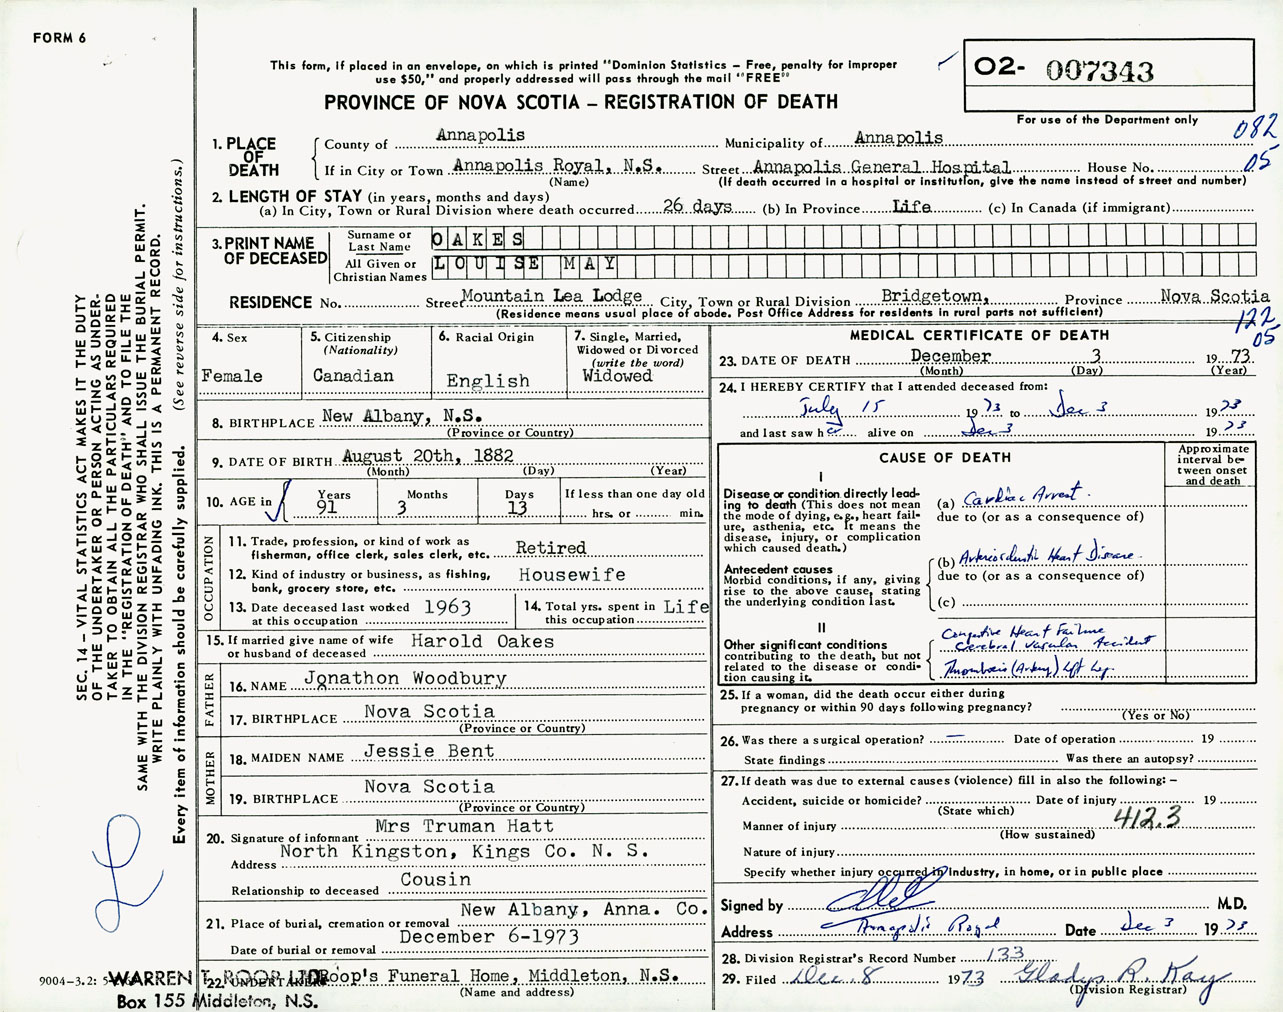 FORM 6
This form, if placed in an envelope, on which is printed "Dominion Statistics – Free, penalty for improper
use $50," and properly addressed will pass through the mail "FREE"
PROVINCE OF NOVA SCOTIA – REGISTRATION OF DEATH
O2- 007343
For use of the Department only
082
05
1. PLACE OF DEATH
County of Annapolis Municipality of Annapolis
If in City or Town Annapolis Royal, N.S. Street Annapolis General Hospital House No.
(Name) (If death occurred in a hospital or institution, give the name instead of street and number)
2. LENGTH OF STAY (in years, months and days)
(a) In City, Town or Rural Division where death occurred 26 days (b) In Province Life (c) In Canada (if immigrant)
3. PRINT NAME OF DECEASED
Surname or Last Name OAKES
All Given or Christian Names LOUISE MAY
RESIDENCE No. Street Mountain Lea Lodge City, Town or Rural Division Bridgetown, Province Nova Scotia
(Residence means usual place of abode. Post Office Address for residents in rural parts not sufficient)
122
05
SEC. 14 – VITAL STATISTICS ACT MAKES IT THE DUTY
OF THE UNDERTAKER OR PERSON ACTING AS UNDER-
TAKER TO OBTAIN ALL THE PARTICULARS REQUIRED
IN THE "REGISTRATION OF DEATH" AND TO FILE THE
SAME WITH THE DIVISION REGISTRAR WHO SHALL ISSUE THE BURIAL PERMIT.
WRITE PLAINLY WITH UNFADING INK. THIS IS A PERMANENT RECORD.
Every item of information should be carefully supplied. (See reverse side for instructions.)
4. Sex
Female
5. Citizenship
(Nationality)
Canadian
6. Racial Origin
English
7. Single, Married,
Widowed or Divorced
(write the word)
Widowed
8. BIRTHPLACE New Albany, N.S.
(Province or Country)
9. DATE OF BIRTH August 20th, 1882
(Month) (Day) (Year)
10. AGE in Years 91 Months 3 Days 13 If less than one day old
hrs. or min.
OCCUPATION
11. Trade, profession, or kind of work as
fisherman, office clerk, sales clerk, etc. Retired
12. Kind of industry or business, as fishing,
bank, grocery store, etc. Housewife
13. Date deceased last worked
at this occupation 1963
14. Total yrs. spent in
this occupation Life
15. If married give name of wife
or husband of deceased Harold Oakes
FATHER
16. NAME Jonathon Woodbury
17. BIRTHPLACE Nova Scotia
(Province or Country)
MOTHER
18. MAIDEN NAME Jessie Bent
19. BIRTHPLACE Nova Scotia
(Province or Country)
20. Signature of informant Mrs Truman Hatt
Address North Kingston, Kings Co. N. S.
Relationship to deceased Cousin
21. Place of burial, cremation or removal New Albany, Anna. Co.
Date of burial or removal December 6-1973
22. UNDERTAKER Roop's Funeral Home, Middleton, N.S.
(Name and address)
9004-3.2: 5
WARREN T. ROOP LTD.
Box 155 Middleton, N.S.
MEDICAL CERTIFICATE OF DEATH
23. DATE OF DEATH December 3 1973
(Month) (Day) (Year)
24. I HEREBY CERTIFY that I attended deceased from:
July 15 1973 to Dec 3 1973
and last saw her alive on Dec 3 1973
CAUSE OF DEATH
Approximate interval between onset and death
I
Disease or condition directly lead-
ing to death (This does not mean
the mode of dying, e.g., heart fail-
ure, asthenia, etc. It means the
disease, injury, or complication
which caused death.)
(a) Cardiac Arrest.
due to (or as a consequence of)
Antecedent causes
Morbid conditions, if any, giving
rise to the above cause, stating
the underlying condition last.
(b) Arteriosclerotic Heart Disease.
due to (or as a consequence of)
(c)
II
Other significant conditions
contributing to the death, but not
related to the disease or condi-
tion causing it.
Congestive Heart Failure
Cerebral Vascular Accident
Thrombosis (Artery) Left Leg.
25. If a woman, did the death occur either during
pregnancy or within 90 days following pregnancy?
(Yes or No)
26. Was there a surgical operation? – Date of operation 19
State findings Was there an autopsy?
27. If death was due to external causes (violence) fill in also the following: –
Accident, suicide or homicide? Date of injury 19
(State which)
412.3
Manner of injury
(How sustained)
Nature of injury
Specify whether injury occurred in industry, in home, or in public place
Signed by M.D.
Address Annapolis Royal Date Dec 3 1973
28. Division Registrar's Record Number 133
29. Filed Dec. 8 1973 Gladys R. Kay
(Division Registrar)